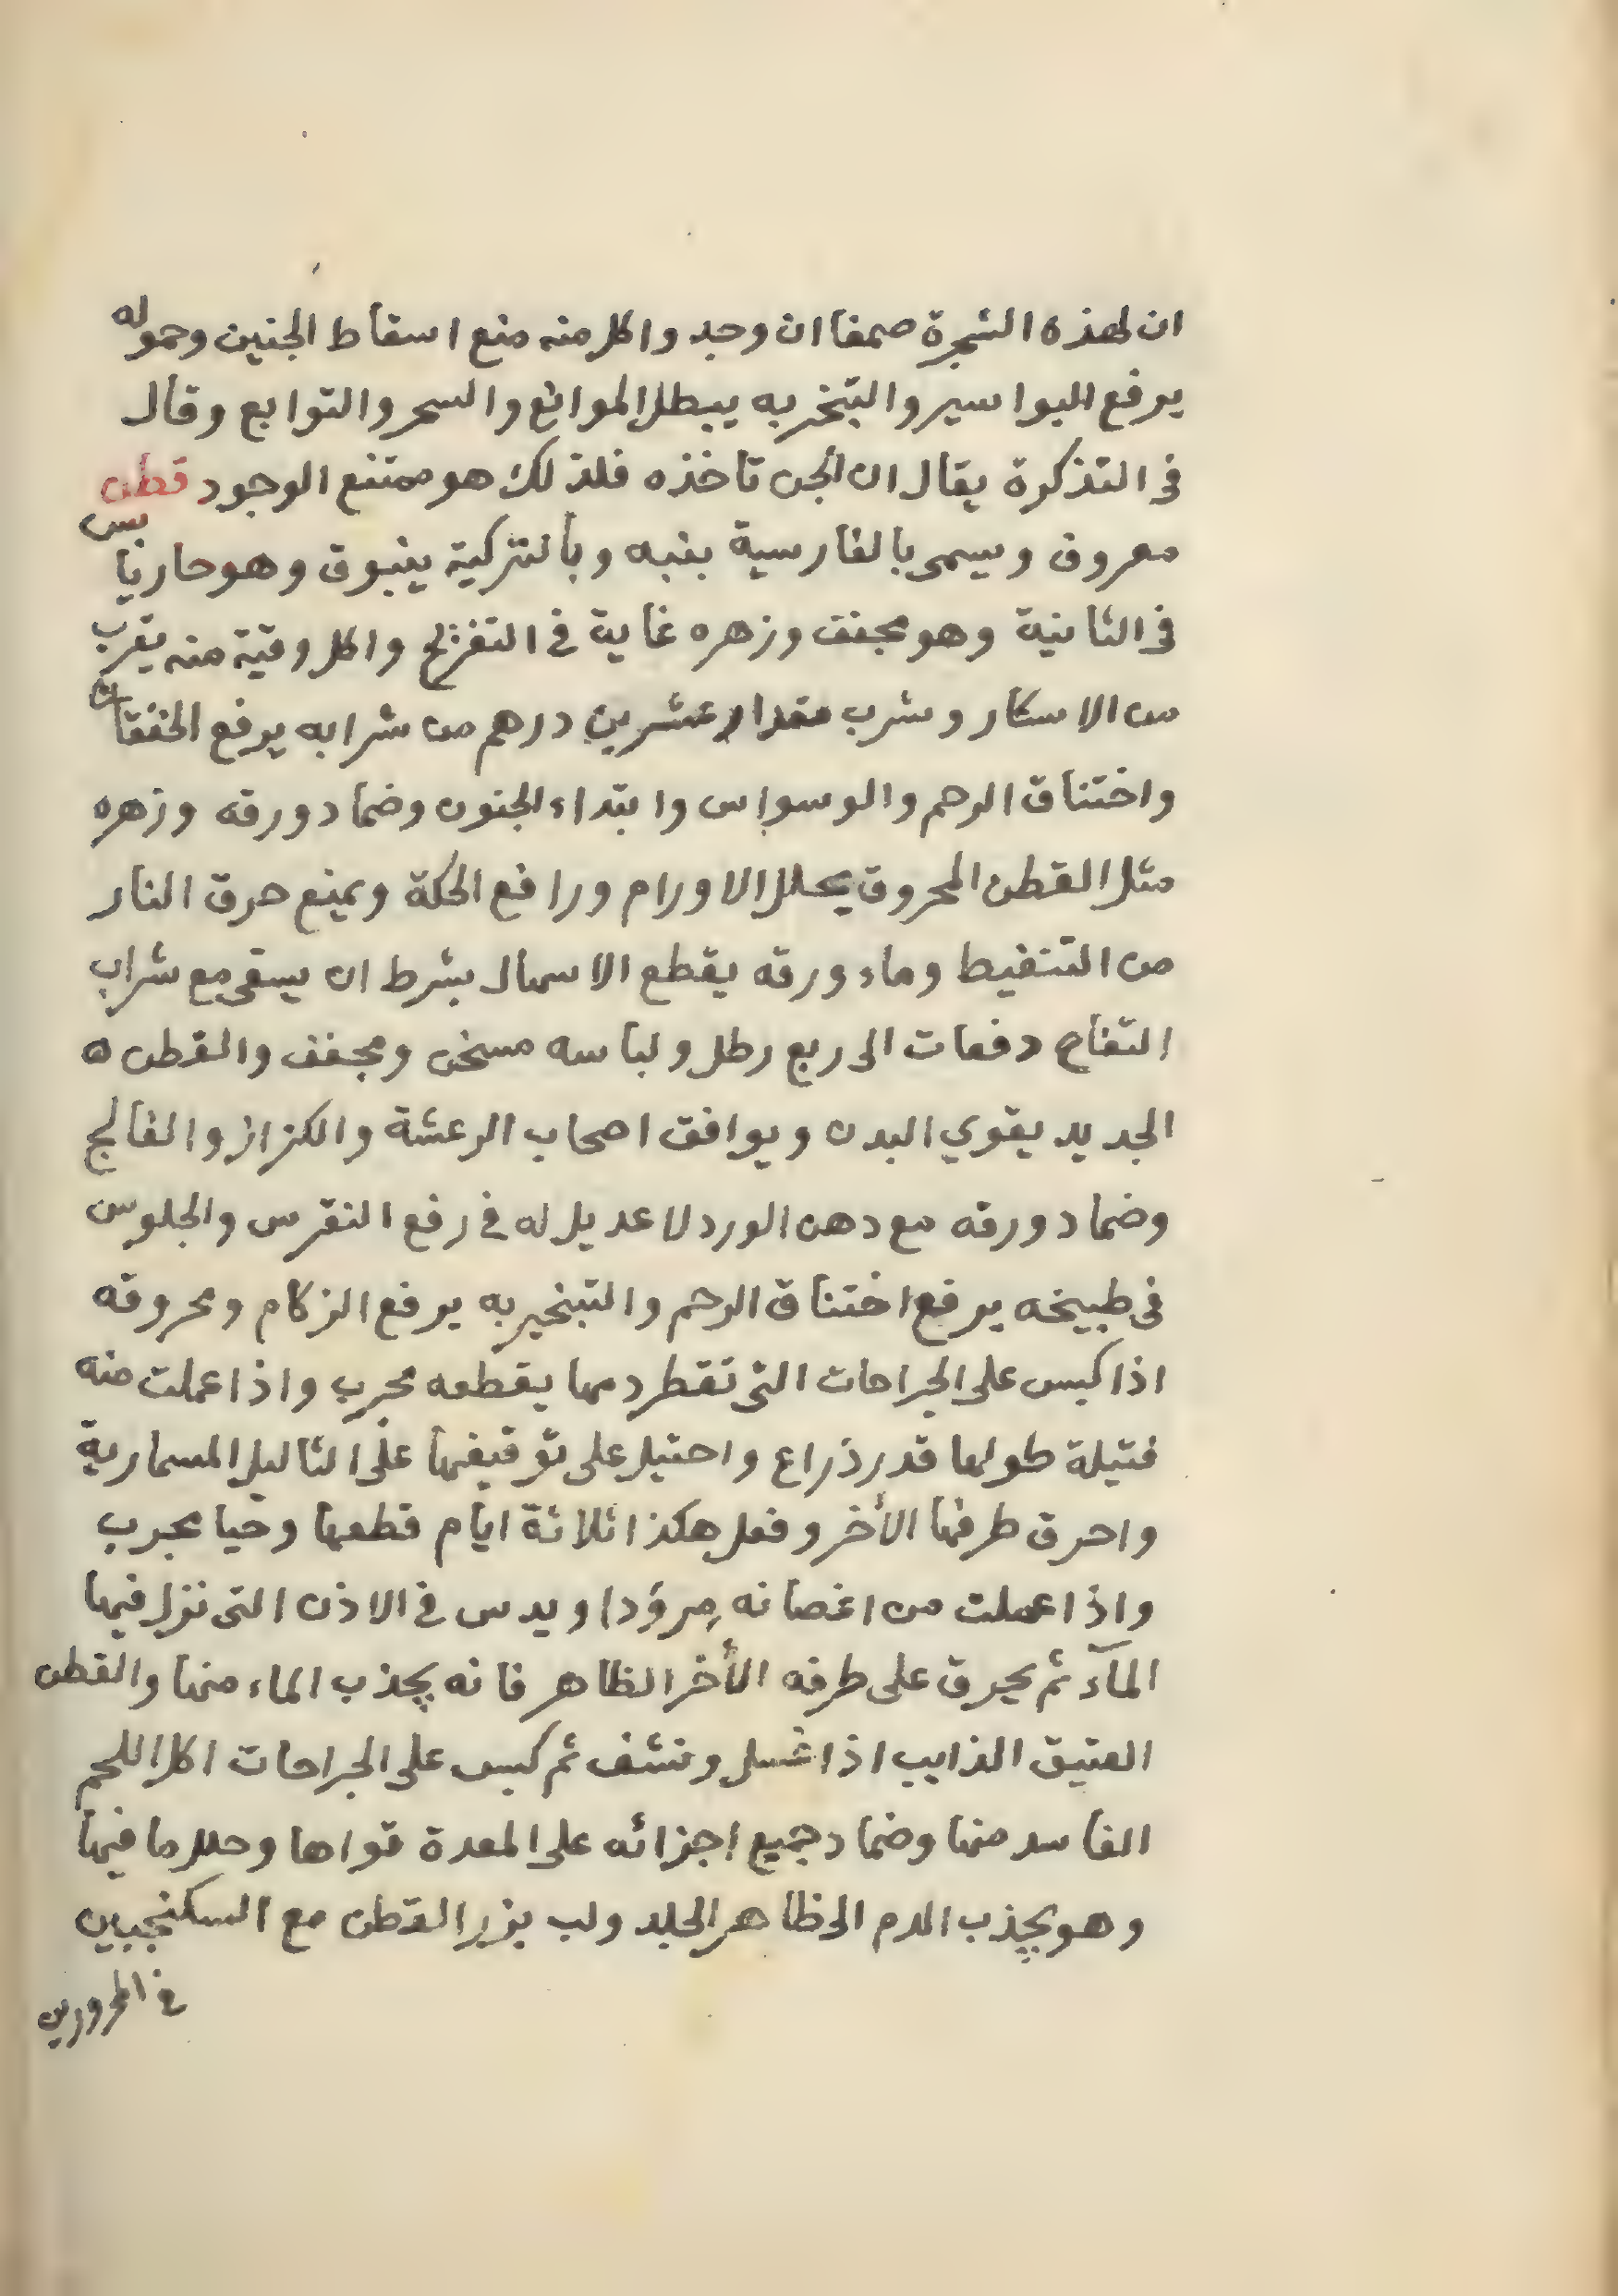 ان لهذه الشجرة صمغا ان وجد واكل منه منع اسقاط الجنين وحموله
يرفع البواسير والتبخر به يبطل الموانع والسحر والتوابع وقال
في التذكرة يقال ان الجن تاخذه فلذلك هو ممتنع الوجود قطن
معروف ويسمى بالفارسية بنبه وبالتركية ينبوق وهو حار يابس
في الثانية وهو مجفف وزهره غاية في التفريح واكل وقية منه يقرب
من الاسكار وشرب مقدار عشرين درهم من شرابه يرفع الخفقان
واختناق الرحم والوسواس وابتداء الجنون وضماد ورقه وزهره
مثل القطن المحروق يحلل الاورام ورافع الحكة ويمنع حرق النار
من التنفيط وماء ورقه يقطع الاسهال بشرط ان يسقى مع شراب
التفاح دفعات الى ربع رطل ولباسه مسخن ومجفف والقطن ه
الجديد يقوي البدن ويوافق اصحاب الرعشة والكزاز والفالج
وضماد ورقه مع دهن الورد لا عديل له في رفع النقرس والجلوس
في طبيخه يرفع اختناق الرحم والتبخير به يرفع الزكام ومحروقه
اذا كبس على الجراحات التي تقطر دمها يقطعه مجرب واذا عملت منه
فتيلة طولها قدر ذراع واحتيل على توقيفها على الثاليل المسمارية
واحرق طرفها الأخر وفعل هكذا ثلاثة ايام قطعها وحيا مجرب
واذا عملت من اغصانه مِروَدا ويدس في الاذن التي نزل فيها
المآء ثم يحرق على طرفه الأخر الظاهر فانه يجذب الماء منها والقطن
العتيق الذايب اذا غسل ونشف ثم كبس على الجراحات اكل اللحم
الفاسد منها وضماد جميع اجزائه على المعدة قواها وحلل ما فيها
وهو يجذب الدم الى ظاهر الجلد ولب بزر القطن مع السكنجبين
في المحرورين